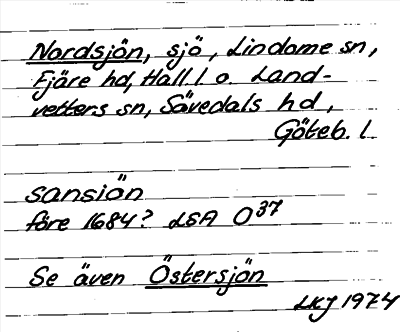 Nordsjön, sjö, Lindome sn,
Fjäre hd, Hall. l o. Land-
vetters sn, Sävedals hd,
Göteb. l.
sansiön
före 1684? LSA O37
Se även Östersjön
LKJ 1974